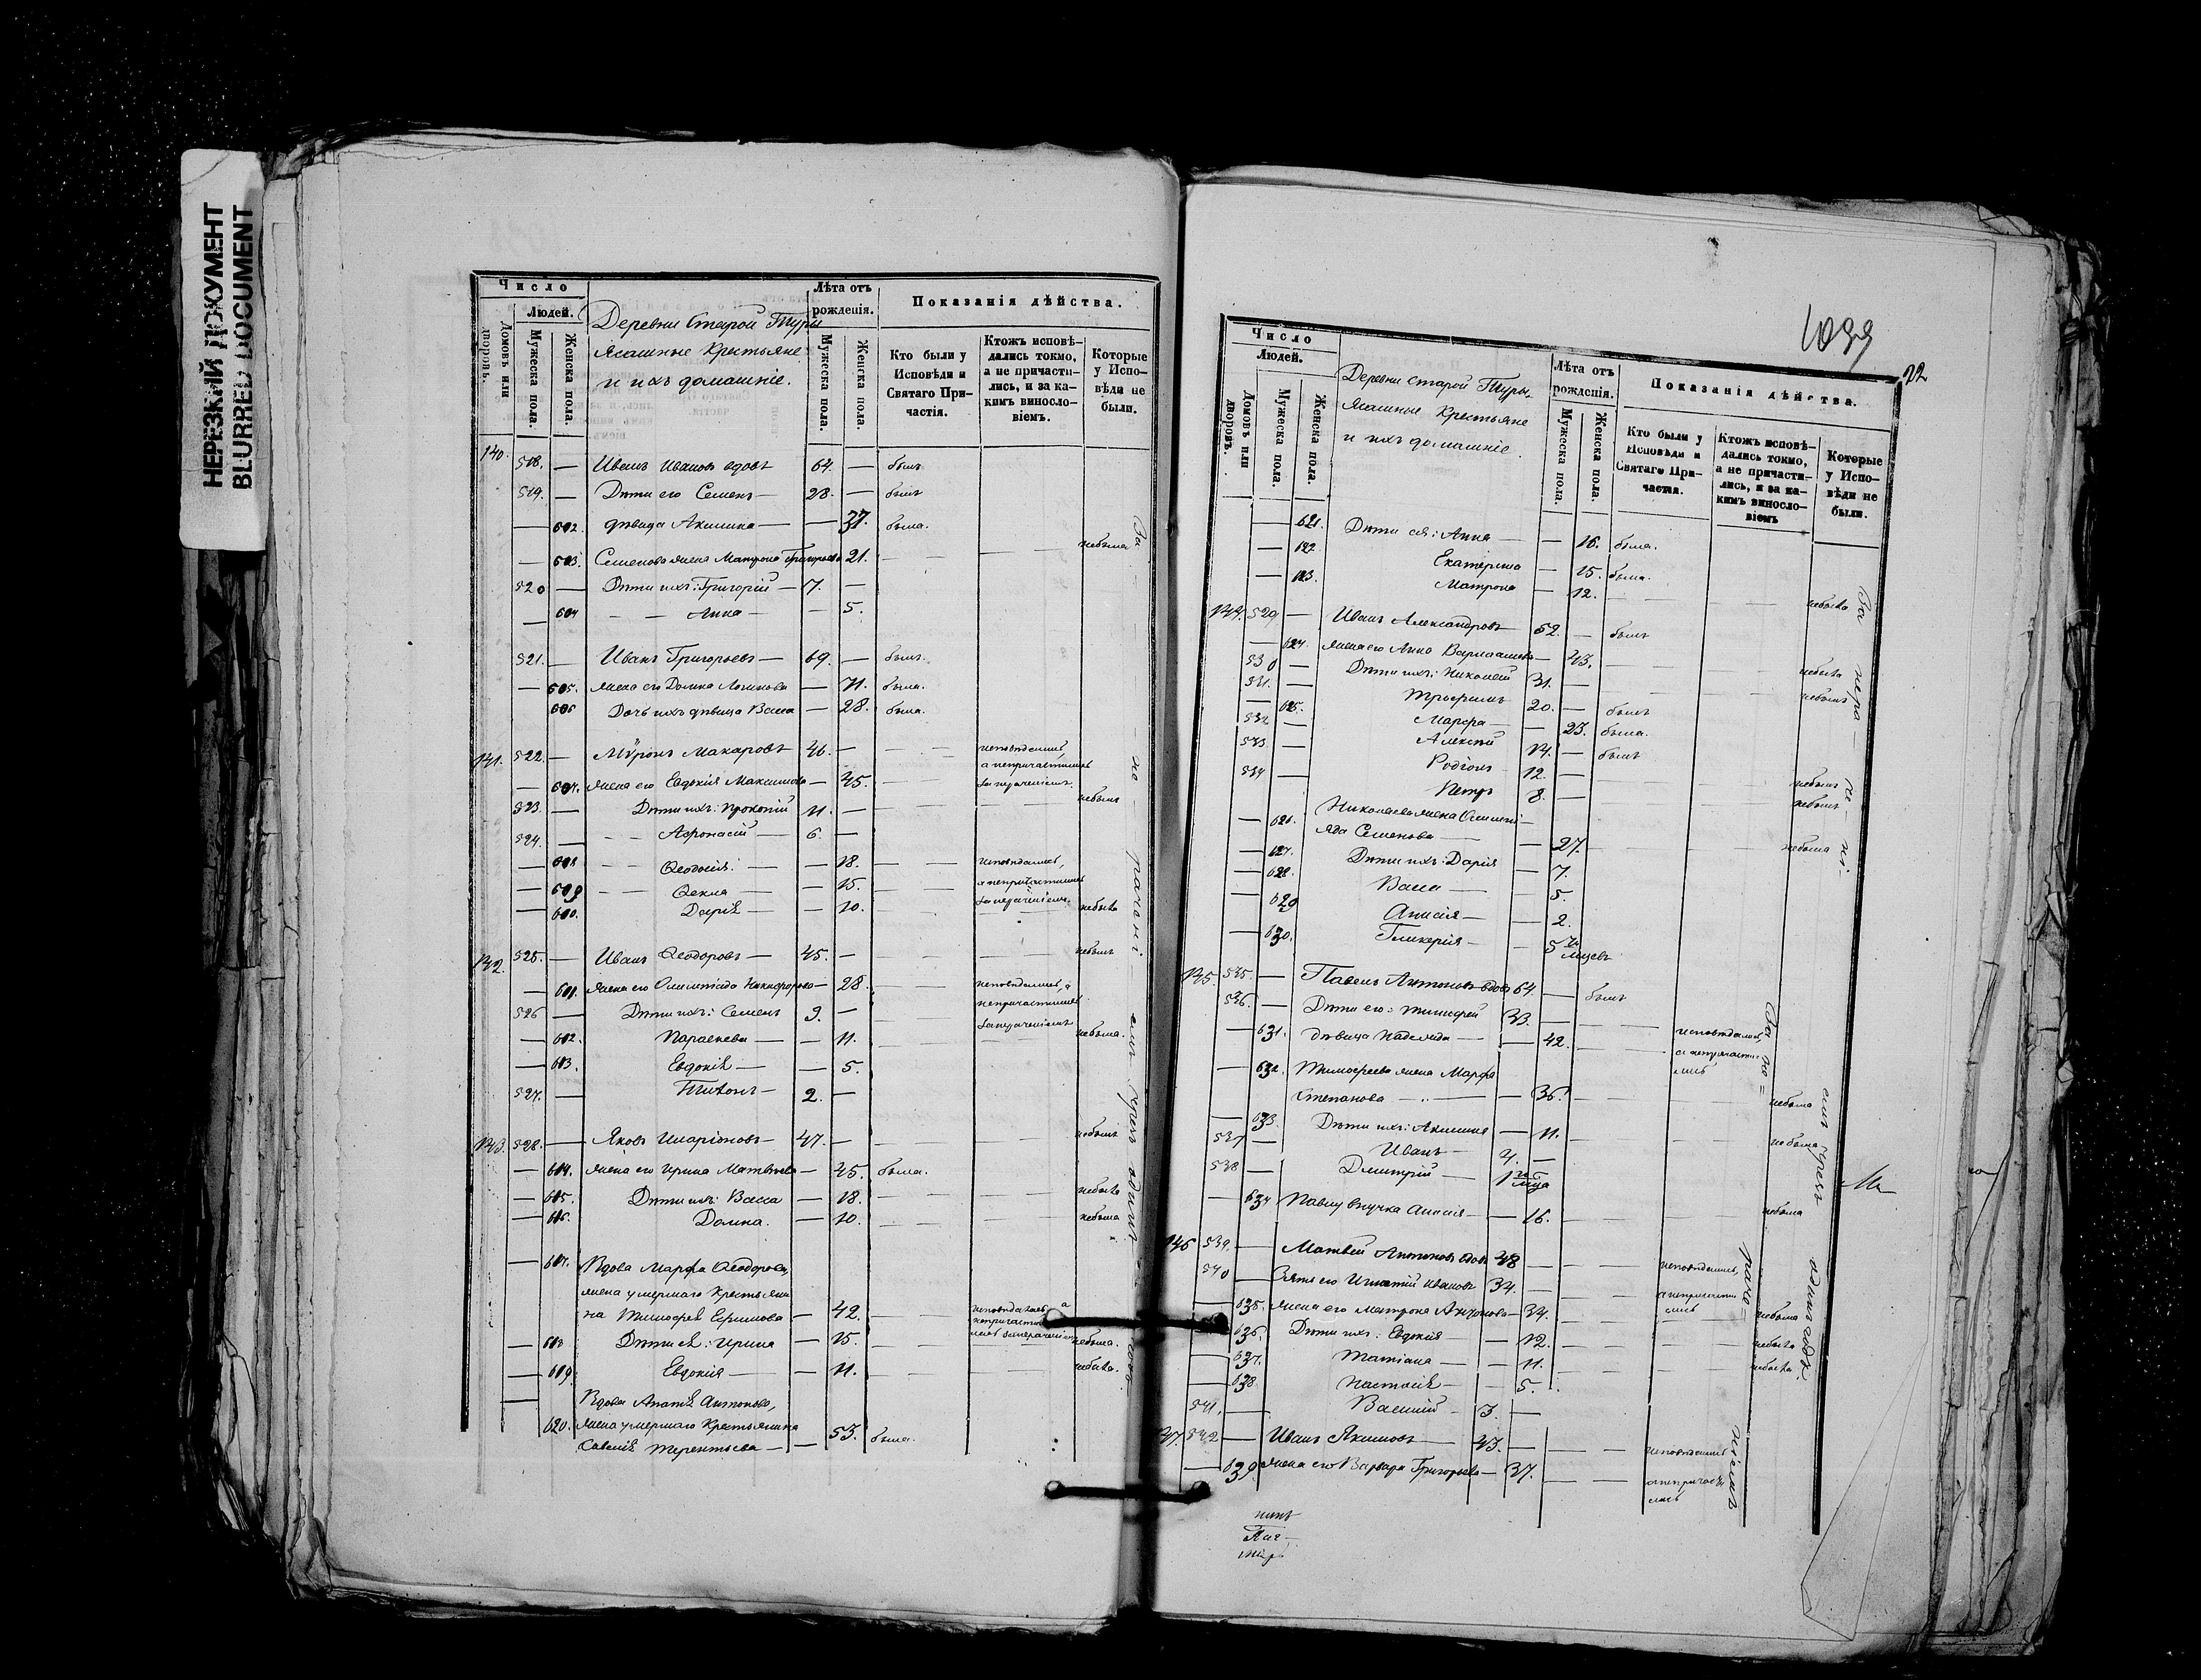 НЕРЕЗКИЙ ДОКУМЕНТ
BLURRED DOCUMENT
Число
Людей.
Домовъ или дворовъ.
Мужеска пола.
Женска пола.
Деревни Старой Туры
Ясашные Крестьяне
и ихъ домашніе.
Лѣта отъ рожденія.
Мужеска пола.
Женска пола.
Показанія дѣйства.
Кто были у Исповѣди и Святаго Причастія.
Ктожъ исповѣдались токмо, а не причастились, и за какимъ винословіемъ.
Которые у Исповѣди не были.
140. 518. — Иванъ Ивановъ вдовъ 64. — былъ
519. — Дѣти его Семенъ — 28. — былъ
— 602. дѣвица Акилина — — 37. была.
— 603. Семенова жена Матрона Григорьева 21. — — небыла
520 — Дѣти ихъ: Григорій — 7. —
— 604 — — Анна — — 5.
521. — Иванъ Григорьевъ — 69. — былъ.
— 605. жена его Домна Логинова — 71. была.
606 Дочь ихъ дѣвица Васса — 28. была.
141. 522. — Мѵронъ Макаровъ 46. — — исповѣдались,
а непричастились
— 607. жена его Евдокія Максимова — 45. — за нерачениемъ.
523. — Дѣти ихъ: Прокопій 11. — небылъ
524. — — — Аѳонасій — 6. —
— 608 — — Ѳеодосія. — — 18. — — исповѣдались,
— 609 — — Ѳекла — — 15. а непричастились
— 610. Дарія — — 10. за нерачениемъ. небыла
142. 525. — Иванъ Ѳеодоровъ — 45. — небылъ
— 611. жена его Олимпіада Никифорова — 28. исповѣдались, а
526 — Дѣти ихъ: Семенъ 9. — непричастились
— 612. Параскева — — 11. за нерачениемъ небыла.
— 613. Евдокія — — 5.
527. — Тихонъ — 2. —
143. 528. — Яковъ Иларіоновъ — 47. — небылъ
— 614. жена его Ирина Матвѣева — 45. была.
— 615. Дѣти ихъ: Васса — 18. небыла
— 616. Домна. — 10. небыла
— 617. Вдова Марфа Ѳеодорова,
жена умершаго Крестьяни
на Тимофея Ефимова — 42. исповѣдались, а
непричасти
— 618 Дѣти ея: Ирина — 15. лись за нерачениемъ небыла.
— 619 Евдокія — — 11. небыла.
— Вдова Агатія Антонова,
620. жена умершаго Крестьянина
Савелія Терентьева — — 53. была.
1099
72
Число
Людей.
Домовъ или дворовъ.
Мужеска пола.
Женска пола.
Деревни Старой Туры.
Ясашные Крестьяне
и ихъ домашніе.
Лѣта отъ рожденія.
Мужеска пола.
Женска пола.
Показанія дѣйства.
Кто были у Исповѣди и Святаго Причастія.
Ктожъ исповѣдались токмо, а не причастились, и за какимъ винословіемъ
Которые у Исповѣди не были.
— 621. Дѣти ея: Анна — — 16. была.
— 622 Екатерина — 15. была.
— 623. Матрона — 12. — — небыла
144. 529 — Иванъ Александровъ 52. — былъ
— 624. жена его Анна Варлаамова — 43. — — небыла
530 — Дѣти ихъ: Николай 31. — небылъ
531. — Трофимъ 20. — былъ
— 625. Марфа — — 23. была.
532 — Алексѣй 14. — былъ
533 — Родіонъ — 12. — небылъ
534 — Петръ 8. — небылъ
— 626. Николаева жена Олимпі
яда Семенова — — 27. небыла
— 627. Дѣти ихъ: Дарія — 7.
— 628. Васса — — 5.
— 629 Анисія — — 2.
— 630. Гликерія — — 5 ти мѣсец.
145. 535. — Павелъ Антоновъ вдовъ 64. — былъ
536. — Дѣти его: Тимофей 33. —
— 631. дѣвица Надежда — — 42. исповѣдались,
а непричасти
лись
— 632. Тимофеева жена Марфа
Степанова — — 36. небыла
— 633. Дѣти ихъ: Акилина — 11. небыла
537 — Иванъ — 4. —
538 — Дмитрій — 1
— 634 Павлу внучка Анисія — — 16. небыла
146 539. — Матвей Антоновъ вдовъ 48 — — исповѣдались,
540 — Зять его Игнатій Ивановъ 34. — а непричасти
лись
635. жена его Матрона Антонова — 34. небыла
636. Дѣти ихъ: Евдокія — — 12. небыла
— 637. Татіана — — 11. небыла
— 638 Настасія — — 5.
541. — Василій — 3. —
147. 542 — Иванъ Якимовъ — 43. — — исповѣдались
— 639 жена его Варвара Григорьева — 37. а непричасти
лись